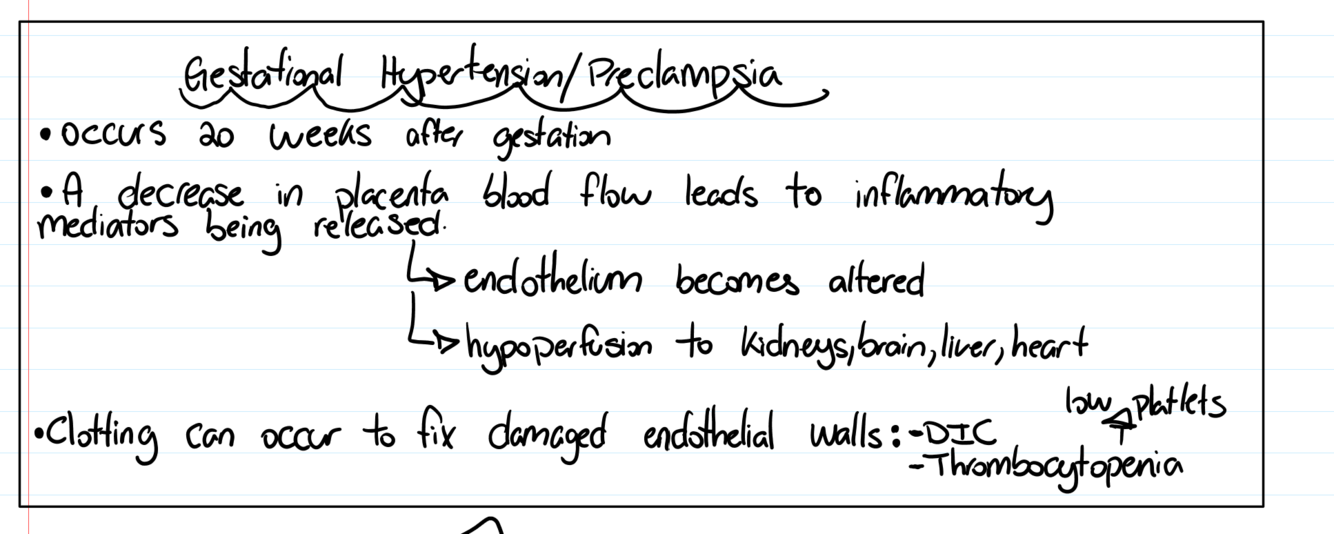 Gestational Hypertension/Preclampsia
• occurs 20 weeks after gestation
• A decrease in placenta blood flow leads to inflammatory
mediators being released.
endothelium becomes altered
hypoperfusion to kidneys, brain, liver, heart
low platlets
• Clotting can occur to fix damaged endothelial walls: - DIC
- Thrombocytopenia